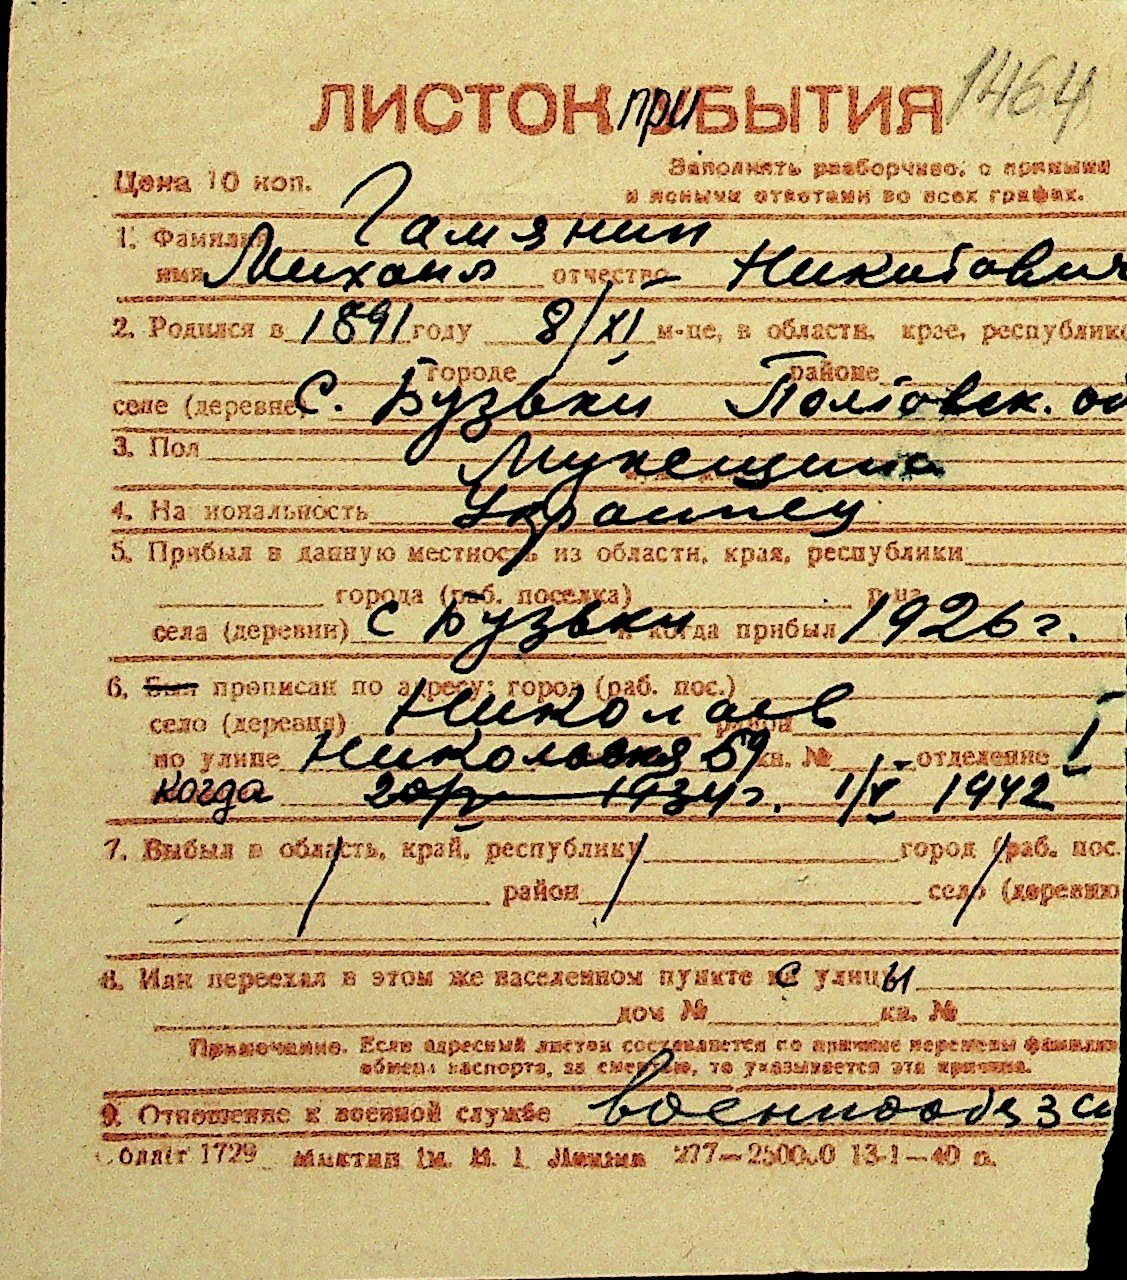 1464
ЛИСТОК прибЫТИЯ
Цена 10 коп.
Заполнять разборчиво, с прямыми
и ясными ответами во всех графах.
1. Фамилия Гамянин
имя Михаил отчество Никитович
2. Родился в 1891 году 8/XI м-це, в области, крае, республике
городе районе
селе (деревне) С. Бузьки Полтовск. об
3. Пол Мужещина
4. Национальность Украинец
5. Прибыл в данную местность из области, края, республики
города (раб. поселка) р-на
села (деревни) с Бузьки и когда прибыл 1926 г.
6. Был прописан по адресу: город (раб. пос.)
село (деревня) Николаев район
по улице Никольская 59 кв. № отделение I
когда 1934 г. 1/V 1942
7. Выбыл в область, край, республику город (раб. пос.
район село (деревню
8. Или переехал в этом же населенном пункте с улицы
дом № кв. №
Примечание. Если адресный листок составляется по причине перемены фамилии
обмена паспорта, за смертью, то указывается эта причина.
9. Отношение к военной службе военнообяз
1729 277—250000 13-1—40 р.